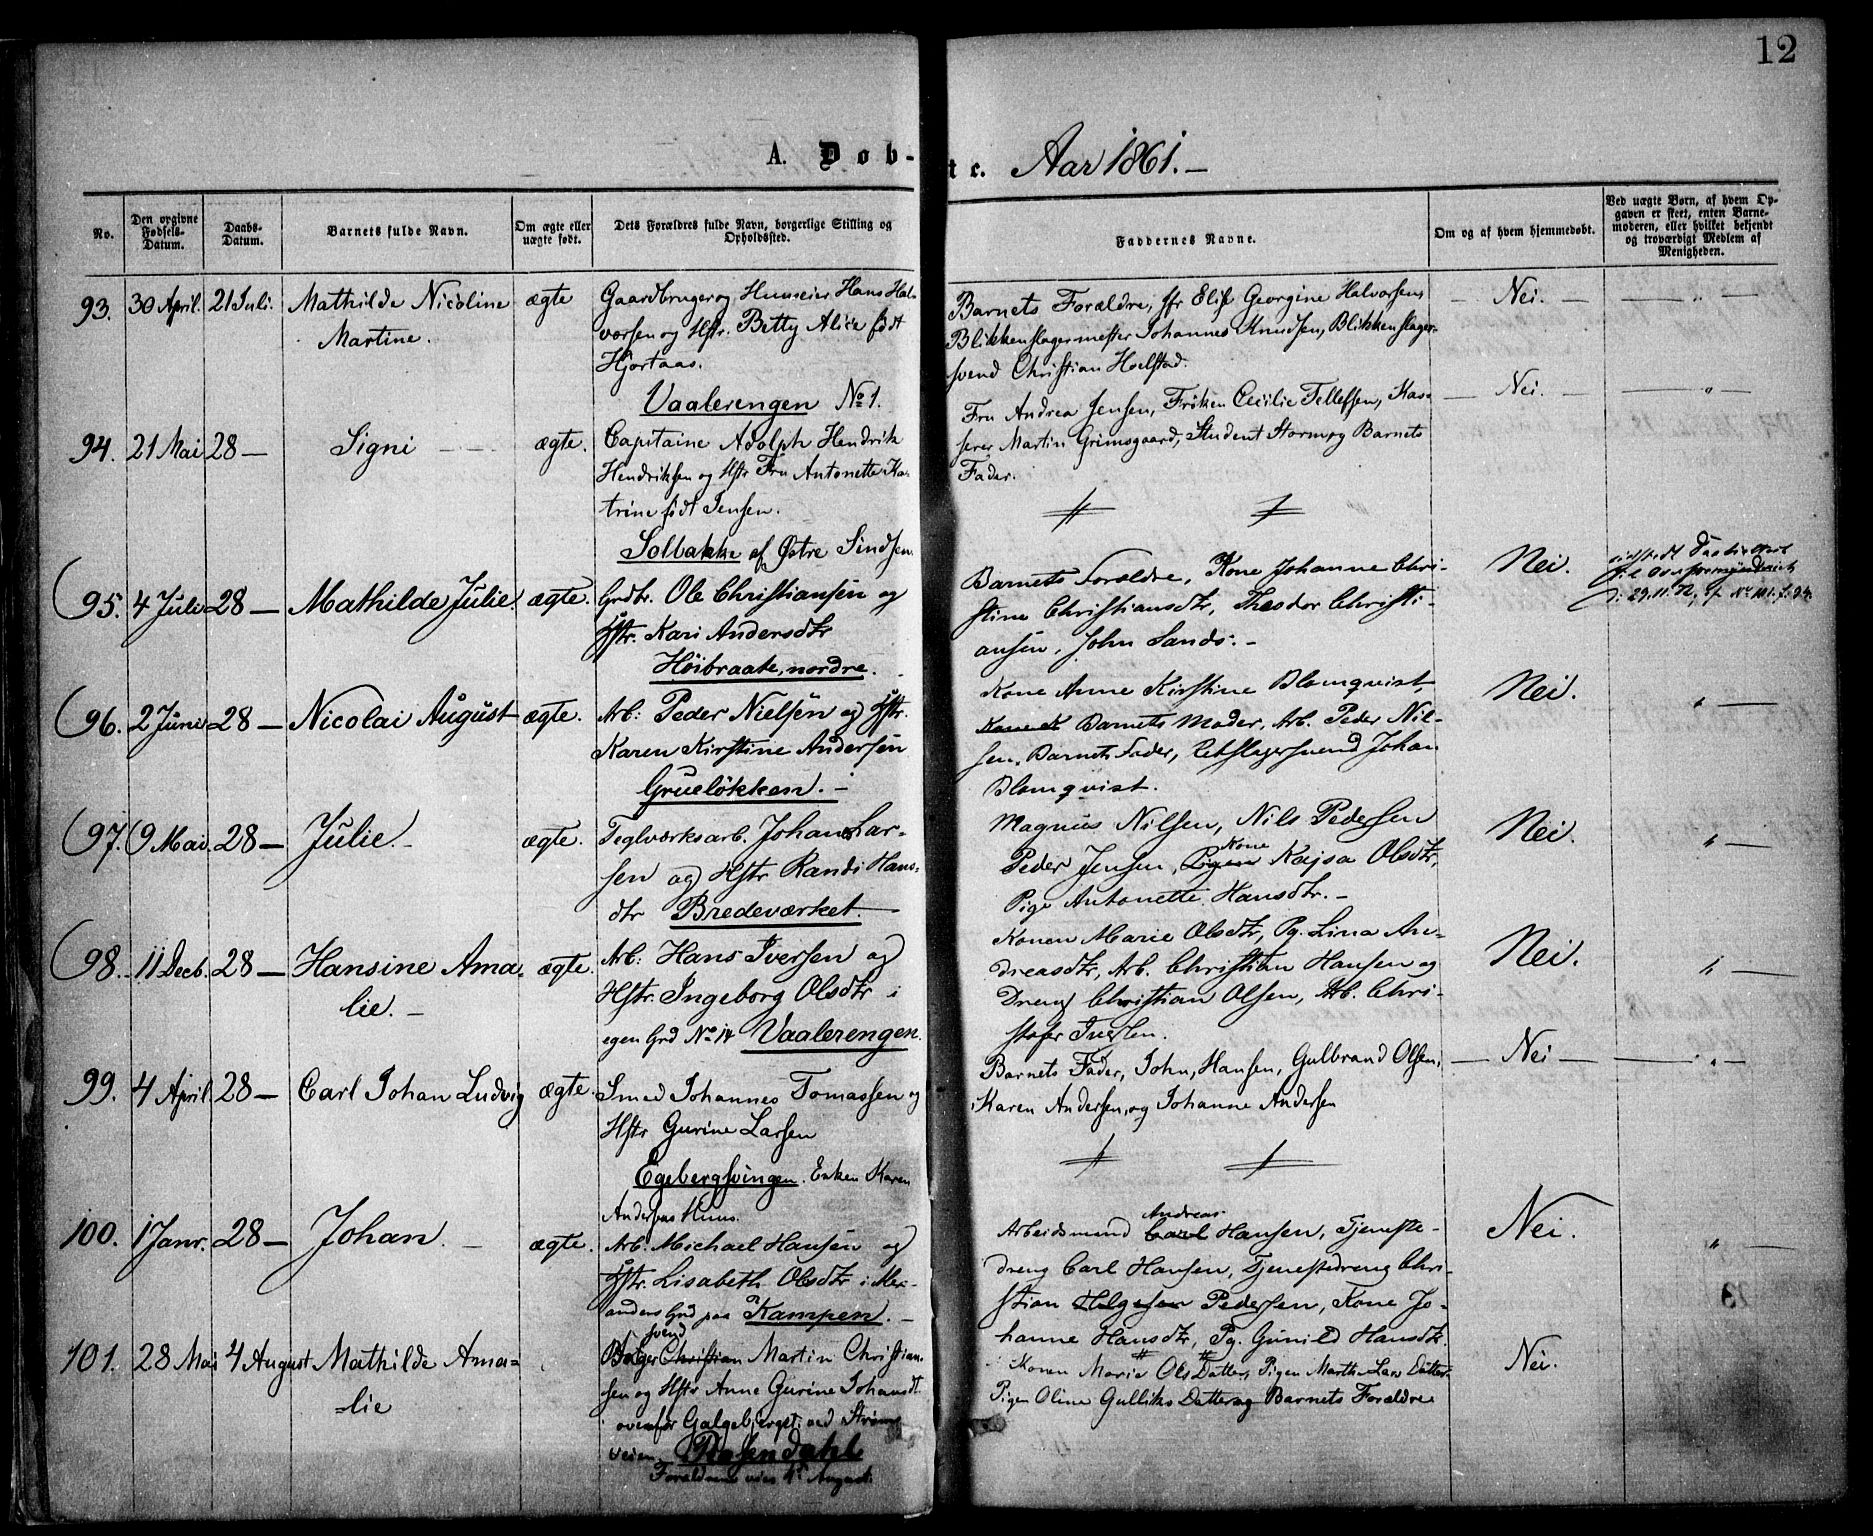 12
A. Døb-
te. Aar 1861.-
No.
Den opgivne
Fødsels-
Datum.
Daabs-
Datum.
Barnets fulde Navn.
Om ægte eller
uægte født.
Dets Forældres fulde Navn, borgerlige Stilling og
Opholdssted.
Faddernes Navne.
Om og af hvem hjemmedøbt.
Ved uægte Børn, af hvem Op-
gaven er skeet, enten Barne-
moderen, eller hvilket bekjendt
og troværdigt Medlem af
Menigheden.
93. 30 April. 21 Juli. Mathilde Nicoline
Martine.
ægte
Gaardbruger og Huuseier Hans Hal-
vorsen og Hstr. Betty Alice født
Hjortaas.
Vaalerengen No 1.
Barnets Forældre, Jfr Elise Georgine Halvorsen,
Blikkenslagermester Johannes Knudsen, Blikkenslager-
svend Christian Hoelstad.
Nei.
94. 21 Mai 28 — Signi
ægte.
Capitaine Adolph Hendrik
Hendriksen og Hstr Fru Antonette Ka-
trine født Jensen.
Solbakke af Østre Sindsen
Fru Andrea Jensen, Frøken Cecilie Tellefsen, Kas-
serer Martin Grimsgaard, Student Storm og Barnets
Fader.
Nei.
95. 4 Juli 28 — Mathilde Julie.
ægte.
Grdbr. Ole Christiansen og
Hstr. Kari Andersdtr
Høibraate, nordre.
Barnets Forældre, Kone Johanne Chri-
stine Christiansdtr, Theodor Christi-
ansen, John Sands.-
Nei.
29.11.72, No 101.
96. 2 Juni 28 — Nicolai August
ægte.
Arb: Peder Nielsen og Hstr.
Karen Kirstine Andersen
Grueløkken.-
Kone Anne Kirstine Blomqvist,
Barnets Moder, Arb. Peder Nil-
sen, Barnets Fader, Rebslagersvend Johan
Blomqvist.
Nei.
97. 9 Mai 28 — Julie.-
ægte.
Teglværksarb. Johan Lar-
sen og Hstr Randi Hans-
dtr Bredeværket.-
Magnus Nilsen, Nils Pedersen
Peder Jensen, Pigen Kone Kajsa Olsdtr,
Pige Antonette Hansdtr.-
Nei.
98. 11 Decb. 28 — Hansine Ama-
lie.-
ægte.
Arb: Hans Iversen og
Hstr. Ingeborg Olsdtr i
egen Grd No 14 Vaalerengen.
Konen Marie Olsdtr, Pg. Lina An-
dreasdtr, Arb. Christian Hansen og
Dreng Christian Olsen, Arb. Chri-
stofer Iversen.
Nei.
99. 4 April. 28 — Carl Johan Ludvig
ægte.
Smed Johannes Tomassen og
Hstr Gurine Larsen
Egebergsvingen. Enken Karen
Andersens Huus.
Barnets Fader, John, Hansen, Gulbrand Olsen,
Karen Andersen, og Johanne Andersen
Nei
100. 1 Janr. 28 — Johan.
ægte.
Arb. Michael Hansen og
Hstr. Lisabeth Olsdtr i Alex-
anders Grd paa Kampen.-
Arbeidsmand Carl Andreas Hansen, Tjeneste-
dreng Carl Hansen, Tjenestedreng Chri-
stian Helgesen Pedersen, Kone Jo-
hanne Hansdtr, Pg. Gunild Hansdtr.
Nei.
101. 28 Mai 4 August Mathilde Ama-
-lie
svend Christian Martin Christian-
sen og Hstr Anne Gurine Johansdt
ovenfor Galgeberget ved Strøms
veien Rosendahl
Forældrene viet 4de August.
Konen Maria Ols Datter, Pigen Marthe Lars Datter
Pigen Oline Gulliks Datter og Barnets Forældre
Nei.